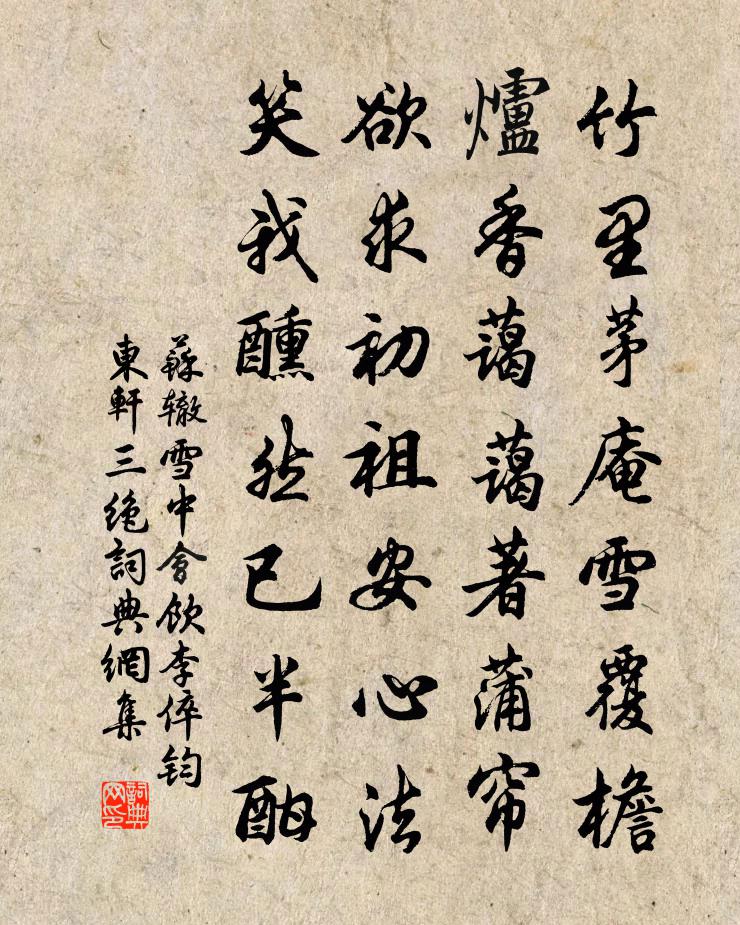 竹里茅庵雪覆檐
爐香藹藹著蒲帘
欲求初祖安心法
笑我醺然已半酣
蘇辙雪中會飲李倅钧
東軒三绝詞典網集
詞典网印